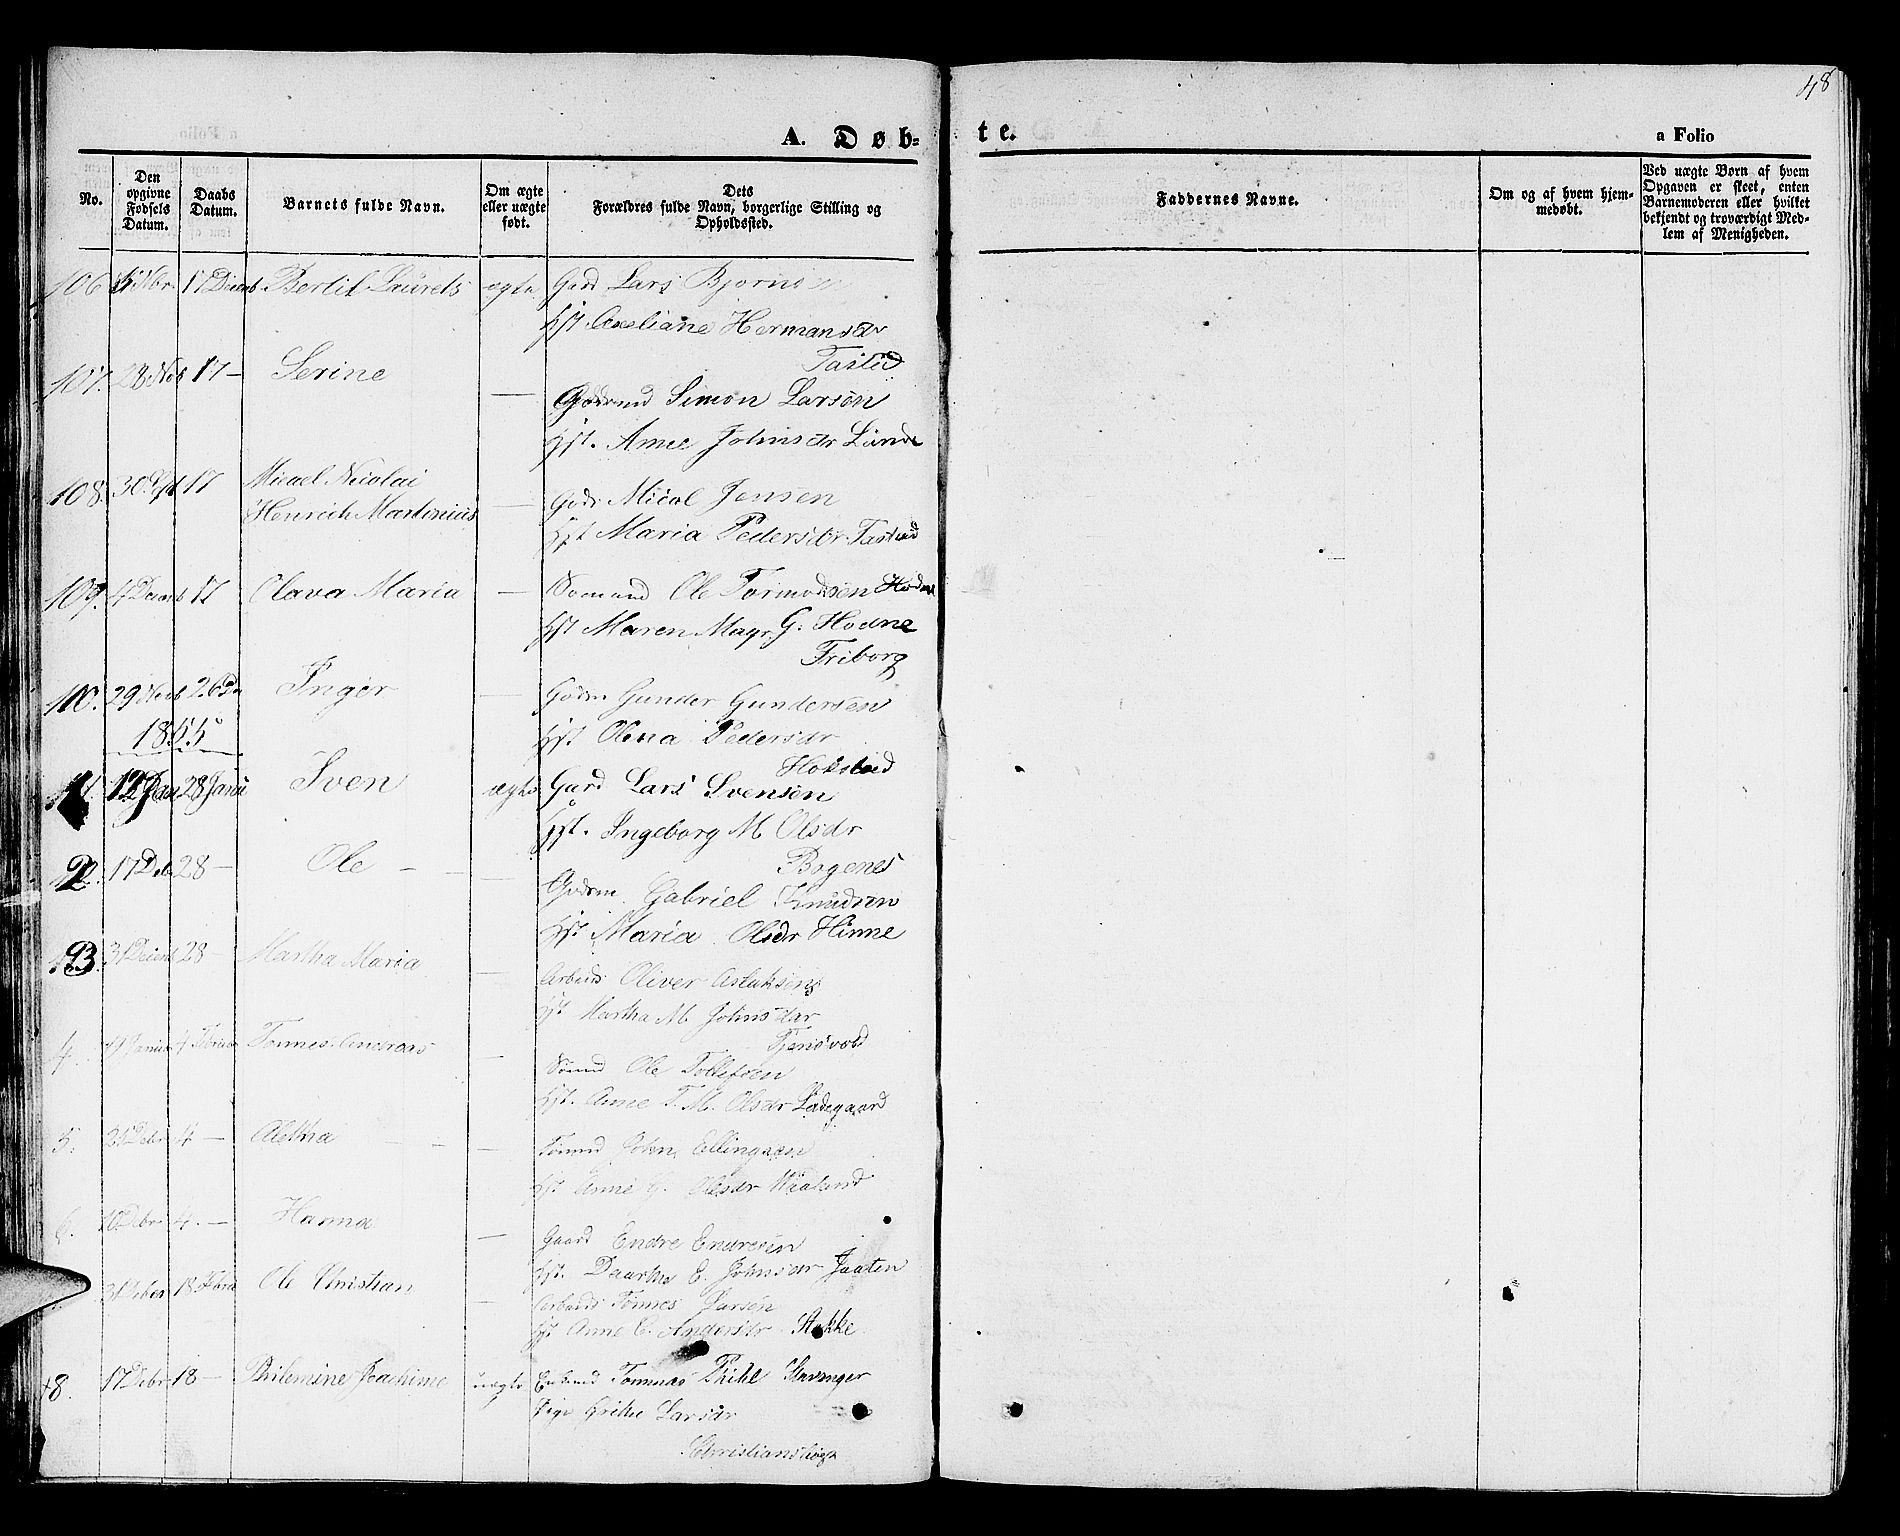 48
A. Døbte.
a Folio
No.
Den opgivne Fødsels Datum.
Daabs Datum.
Barnets fulde Navn.
Om ægte eller uægte født.
Dets Forældres fulde Navn, borgerlige Stilling og Opholdssted.
Faddernes Navne.
Om og af hvem hjemmedøbt.
Ved uægte Børn af hvem Opgaven er skeet, enten Barnemoderen eller hvilket bekjendt og troværdigt Medlem af Menigheden.
106 Nbr. 17 Decemb Bertil Laurets ægte Gard Lars Bjørns
Hst. Axeliane Hermansdr
Tasted
107. 28 Novb 17 — Serine — Simon Larsen
Hst. Anne Johnsdr Lunde
108. 30 Spt 17 Micael Nicolai
Henrich Martinius — Gdr Micol Jensen
Hst Maria Pedersdr Tasted
109. 4 Decemb 17 Olava Maria — Sømand Ole Tormodsen Hodne
Hst Maren Magr. G. Hodne
Friborg
110. 29 Novb 26 De Inger — Gdm Gunder Gundersen
Hst Olena Pedersdr
1855
Hokstad
1. 12 Jan 28 Janu Sven ægte Gard Lars Svensen
Hst. Ingeborg M Olsdr
Bogenes
2. 17 Deb 28 — Ole — Gdsm. Gabriel Knudsen
Hst Maria Olsdr Hinne
3. 31 Decemb 28 — Martha Maria — Arbeids Oliver Aslaksen
Hst Martha M Johnsdar
Tjensvold
4. 19 Januar 4 Februar Tonnes Andreas — Sømd Ole Tollefsen
Hst. Anne T. M. Olsdr Ladegaard
5. Debr 4 — Aletha — John Ellingsen
Hst Anne G. Olsdr Waaland
6. 10 Debr 4. — Hanna — Gaard Endre Endresen
Hst. Daarthe E. Johnsdr Jaaten
31 Deber 18 Febru Ole Christian — Arbeids Tønnes Larsen
Hst Anne C. Andersdr Stokke
8. 17 Debr 18 — Philemine Joachime uægte Enkemd Tommas Phihl Stavanger
Pige Grethe Larsdr
Christianslyst